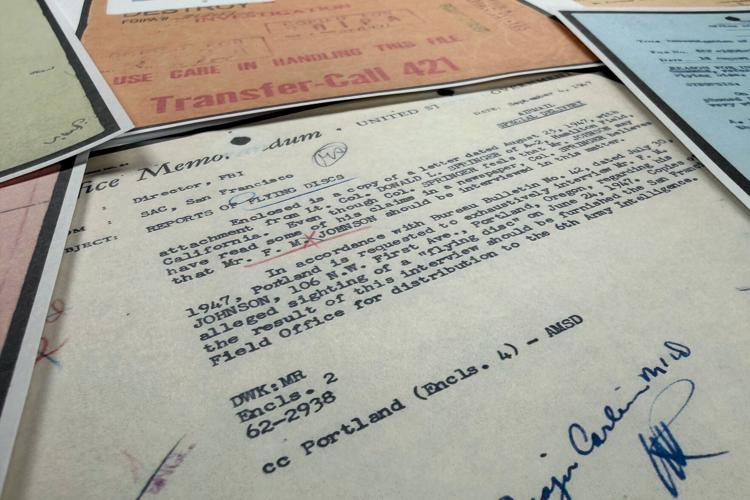 DESTROY
FOIPA #
INVESTIGATION
USE CARE IN HANDLING THIS FILE
Transfer-Call 421
ice Memo dum • UNITED ST
DATE: September
AIRMAIL
SPECIAL DELIVERY
Director, FBI
SAC, San Francisco
BJECT: REPORTS OF FLYING DISCS
Enclosed is a copy of a letter dated August 25, 1947, with
attachment from Lt. Col. DONALD L. SPRINGER of A-2, Hamilton Field,
California. Even though Col. SPRINGER states
have read some of his items in a newspaper, Col. SPRINGER believes
that Mr. F. M. JOHNSON should be interviewed in this matter.
In accordance with Bureau Bulletin No. 42, dated July 30,
1947, Portland is requested to exhaustively interview Mr. F. M.
JOHNSON, 106 N.W. First Ave., Portland, Oregon, regarding his
alleged sighting of a "flying disc" on June 24, 1947. Copies of
the result of this interview should be furnished the San Francisco
Field Office for distribution to the 6th Army Intelligence.
DWK:MR
Encls. 2
62-2938
cc Portland (Encls. 4) - AMSD